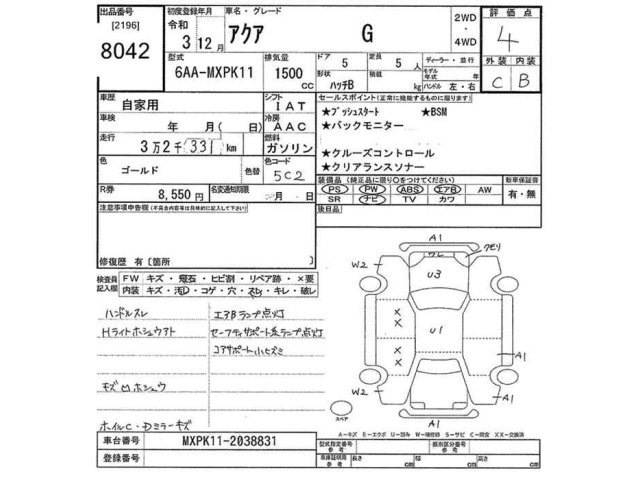 出品番号 初度登録年月 車名・グレード 2WD・4WD 評価点
[2196] 令和 3年 12月 アクア G 4
8042
型式 排気量 ドア 5 定員 5人 ディーラー・並行 外装 内装
6AA-MXPK11 1500cc 形状 ハッチB 積載 kg モデル年式 年 ハンドル 左・右 C B
車歴 自家用 シフト IAT セールスポイント(正常に機能するものに限ります)
車検 年 月(日) 冷房 AAC ★プッシュスタート ★BSM
★バックモニター
走行 3万2千331km 燃料 ガソリン
★クルーズコントロール
★クリアランスソナー
色 ゴールド 色替 色コード 5C2
装備品(純正品に限り○をつけてください) 新車保証書
R券 8,550円 名変通知期限 月 日 PS PW ABS エアB AW 有・無
SR ナビ TV カワ
注意事項申告欄(不具合内容等は具体的に記入して下さい) 後日品
修復歴 有[箇所 ]
検査員記入欄 FW キズ・飛石・ヒビ割・リペア跡・×要
内装 キズ・汚れ・コゲ・穴・スレ・キレ・破レ
ハンドルスレ エアBランプ点灯
Hライトホシュウアト セーフティサポート系ランプ点灯
コアサポート小ヒズミ
キズ凹ホシュウ
ホイルC・Dミラーキズ
A1
クモリ
W2
U3
U1
×
×
×
×
A1
W2
A1
A1
スペア
A-キズ E-エクボ U-凹み W-補修跡 S-サビ C-腐食 XX-交換済
車台番号 MXPK11-2038831 型式指定番号 参考 類別区分番号 参考
登録番号 車庫証明用 参考 長さ cm 幅 cm 高さ cm